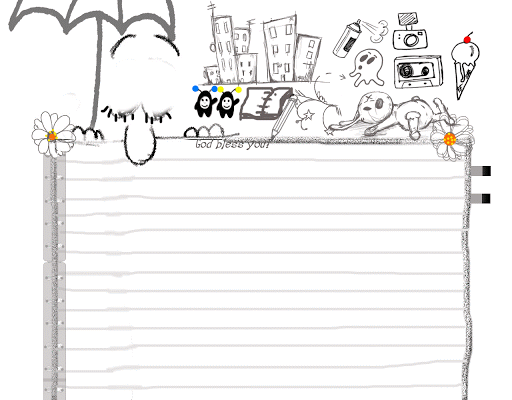 God bless you!